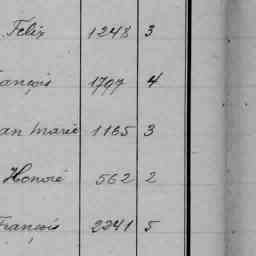 Felix 1248 3
ançois 1797 4
an Marie 1165 3
Honoré 562 2
François 2241 5